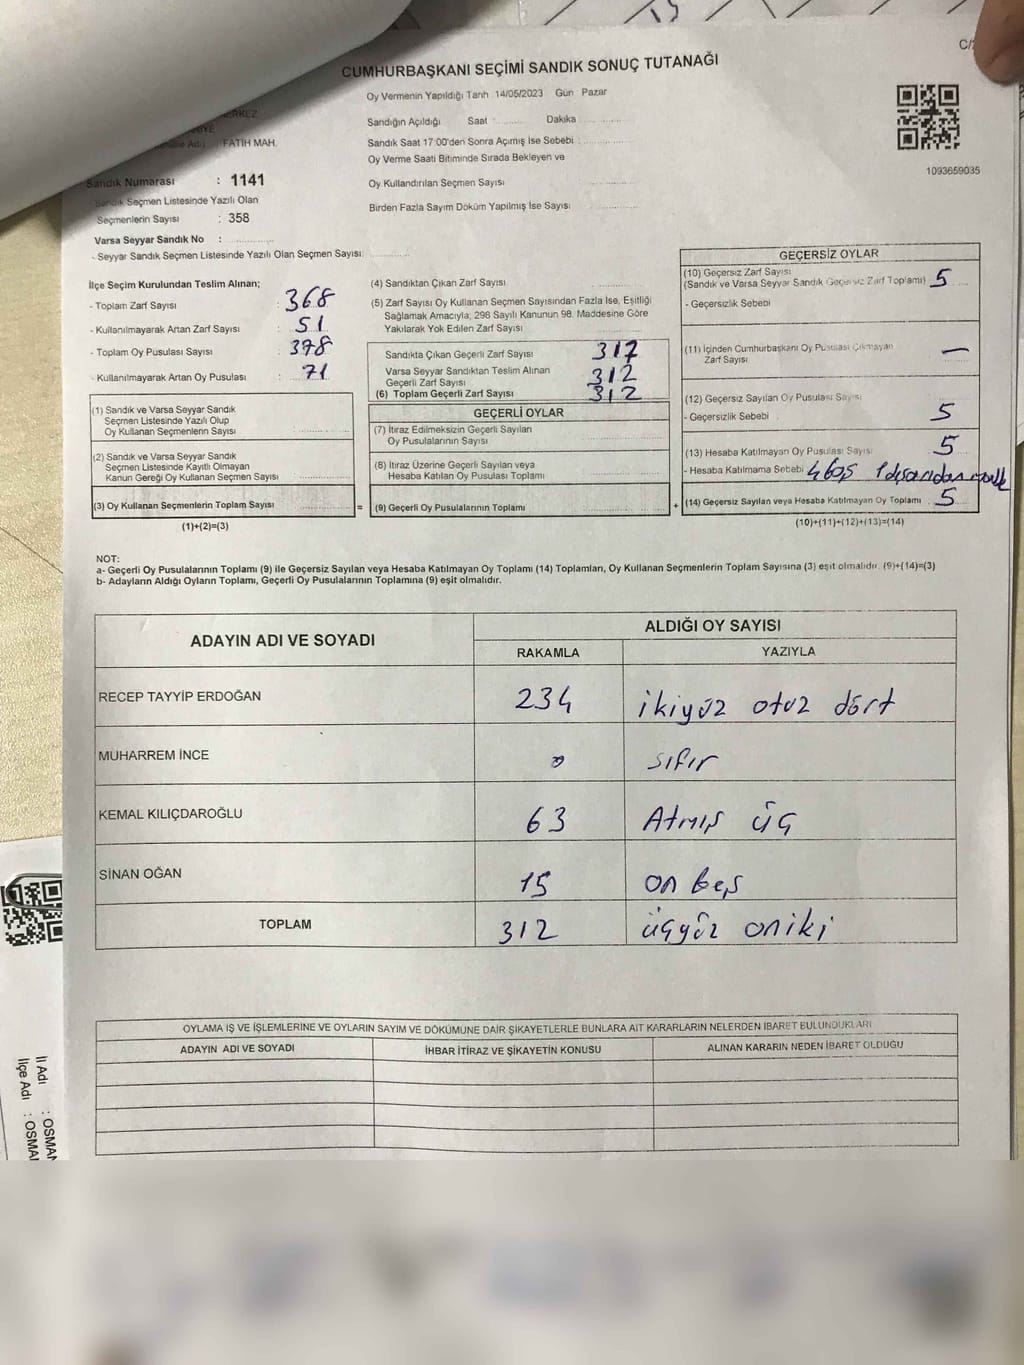 C/
CUMHURBAŞKANI SEÇİMİ SANDIK SONUÇ TUTANAĞI
Oy Vermenin Yapıldığı Tarih 14/05/2023 Gün Pazar
Sandığın Açıldığı Saat Dakika
Sandık Saat 17:00'den Sonra Açımış İse Sebebi :
Oy Verme Saati Bitiminde Sırada Bekleyen ve
Oy Kullandırılan Seçmen Sayısı
Birden Fazla Sayım Döküm Yapılmış İse Sayısı
1093659035
FATİH MAH.
Sandık Numarası : 1141
Sandık Seçmen Listesinde Yazılı Olan
Seçmenlerin Sayısı : 358
Varsa Seyyar Sandık No :
- Seyyar Sandık Seçmen Listesinde Yazılı Olan Seçmen Sayısı:
İlçe Seçim Kurulundan Teslim Alınan;
- Toplam Zarf Sayısı : 368
- Kullanılmayarak Artan Zarf Sayısı : 51
- Toplam Oy Pusulası Sayısı : 378
- Kullanılmayarak Artan Oy Pusulası : 71
(1) Sandık ve Varsa Seyyar Sandık
Seçmen Listesinde Yazılı Olup
Oy Kullanan Seçmenlerin Sayısı
(2) Sandık ve Varsa Seyyar Sandık
Seçmen Listesinde Kayıtlı Olmayan
Kanun Gereği Oy Kullanan Seçmen Sayısı
(3) Oy Kullanan Seçmenlerin Toplam Sayısı =
(1)+(2)=(3)
(4) Sandıktan Çıkan Zarf Sayısı
(5) Zarf Sayısı Oy Kullanan Seçmen Sayısından Fazla İse, Eşitliği
Sağlamak Amacıyla, 298 Sayılı Kanunun 98. Maddesine Göre
Yakılarak Yok Edilen Zarf Sayısı
Sandıkta Çıkan Geçerli Zarf Sayısı 317
Varsa Seyyar Sandıktan Teslim Alınan
Geçerli Zarf Sayısı 312
(6) Toplam Geçerli Zarf Sayısı 312
GEÇERLİ OYLAR
(7) İtiraz Edilmeksizin Geçerli Sayılan
Oy Pusulalarının Sayısı
(8) İtiraz Üzerine Geçerli Sayılan veya
Hesaba Katılan Oy Pusulası Toplamı
(9) Geçerli Oy Pusulalarının Toplamı +
GEÇERSİZ OYLAR
(10) Geçersiz Zarf Sayısı
(Sandık ve Varsa Seyyar Sandık Geçersiz Zarf Toplamı) 5
- Geçersizlik Sebebi
(11) İçinden Cumhurbaşkanı Oy Pusulası Çıkmayan
Zarf Sayısı —
(12) Geçersiz Sayılan Oy Pusulası Sayısı
- Geçersizlik Sebebi 5
(13) Hesaba Katılmayan Oy Pusulası Sayısı 5
- Hesaba Katılmama Sebebi 4 boş 1 dışarıdan
(14) Geçersiz Sayılan veya Hesaba Katılmayan Oy Toplamı 5
(10)+(11)+(12)+(13)=(14)
NOT:
a- Geçerli Oy Pusulalarının Toplamı (9) ile Geçersiz Sayılan veya Hesaba Katılmayan Oy Toplamı (14) Toplamları, Oy Kullanan Seçmenlerin Toplam Sayısına (3) eşit olmalıdır. (9)+(14)=(3)
b- Adayların Aldığı Oyların Toplamı, Geçerli Oy Pusulalarının Toplamına (9) eşit olmalıdır.
ADAYIN ADI VE SOYADI ALDIĞI OY SAYISI
RAKAMLA YAZIYLA
RECEP TAYYİP ERDOĞAN 234 ikiyüz otuz dört
MUHARREM İNCE 0 sıfır
KEMAL KILIÇDAROĞLU 63 Atmış üç
SİNAN OĞAN 15 on beş
TOPLAM 312 üçyüz oniki
OYLAMA İŞ VE İŞLEMLERİNE VE OYLARIN SAYIM VE DÖKÜMÜNE DAİR ŞİKAYETLERLE BUNLARA AİT KARARLARIN NELERDEN İBARET BULUNDUKLARI
ADAYIN ADI VE SOYADI İHBAR İTİRAZ VE ŞİKAYETİN KONUSU ALINAN KARARIN NEDEN İBARET OLDUĞU
İl Adı : OSMAN
İlçe Adı : OSMA